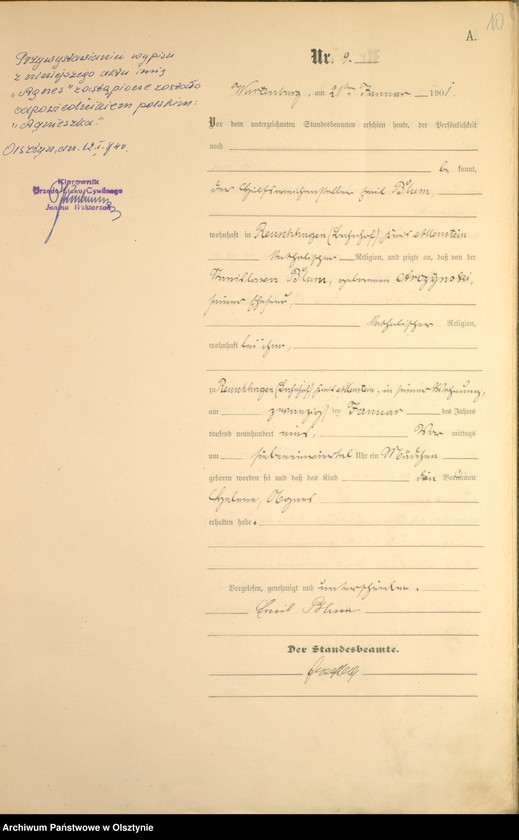 10
A.
Przy wystawianiu wypisu
z niniejszego aktu imię
"Agnes" zastąpione zostało
odpowiednikiem polskim:
"Agnieszka"
Olsztyn, dn. 12.I.
Kierownik
Urzędu Stanu Cywilnego
Nr. 9.
Wartenburg, am 21ten Januar 1901.
Vor dem unterzeichneten Standesbeamten erschien heute, der Persönlichkeit
nach
be kannt,
der Hilfsweichensteller Emil Blum,
wohnhaft in Reuschhagen (Bahnhof), Kreis Allenstein
katholischer Religion, und zeigte an, daß von der
Blum, geborenen
seiner Ehefrau,
katholischer Religion,
wohnhaft bei ihm,
zu Reuschhagen (Bahnhof), Kreis Allenstein, in seiner Wohnung,
am zwanzigsten Januar des Jahres
tausend neunhundert eins, Vor mittags
um Uhr ein Mädchen
geboren worden sei und daß das Kind die Vornamen
Helene, Agnes
erhalten habe.
Vorgelesen, genehmigt und unterschrieben.
Emil Blum
Der Standesbeamte.
Archiwum Państwowe w Olsztynie